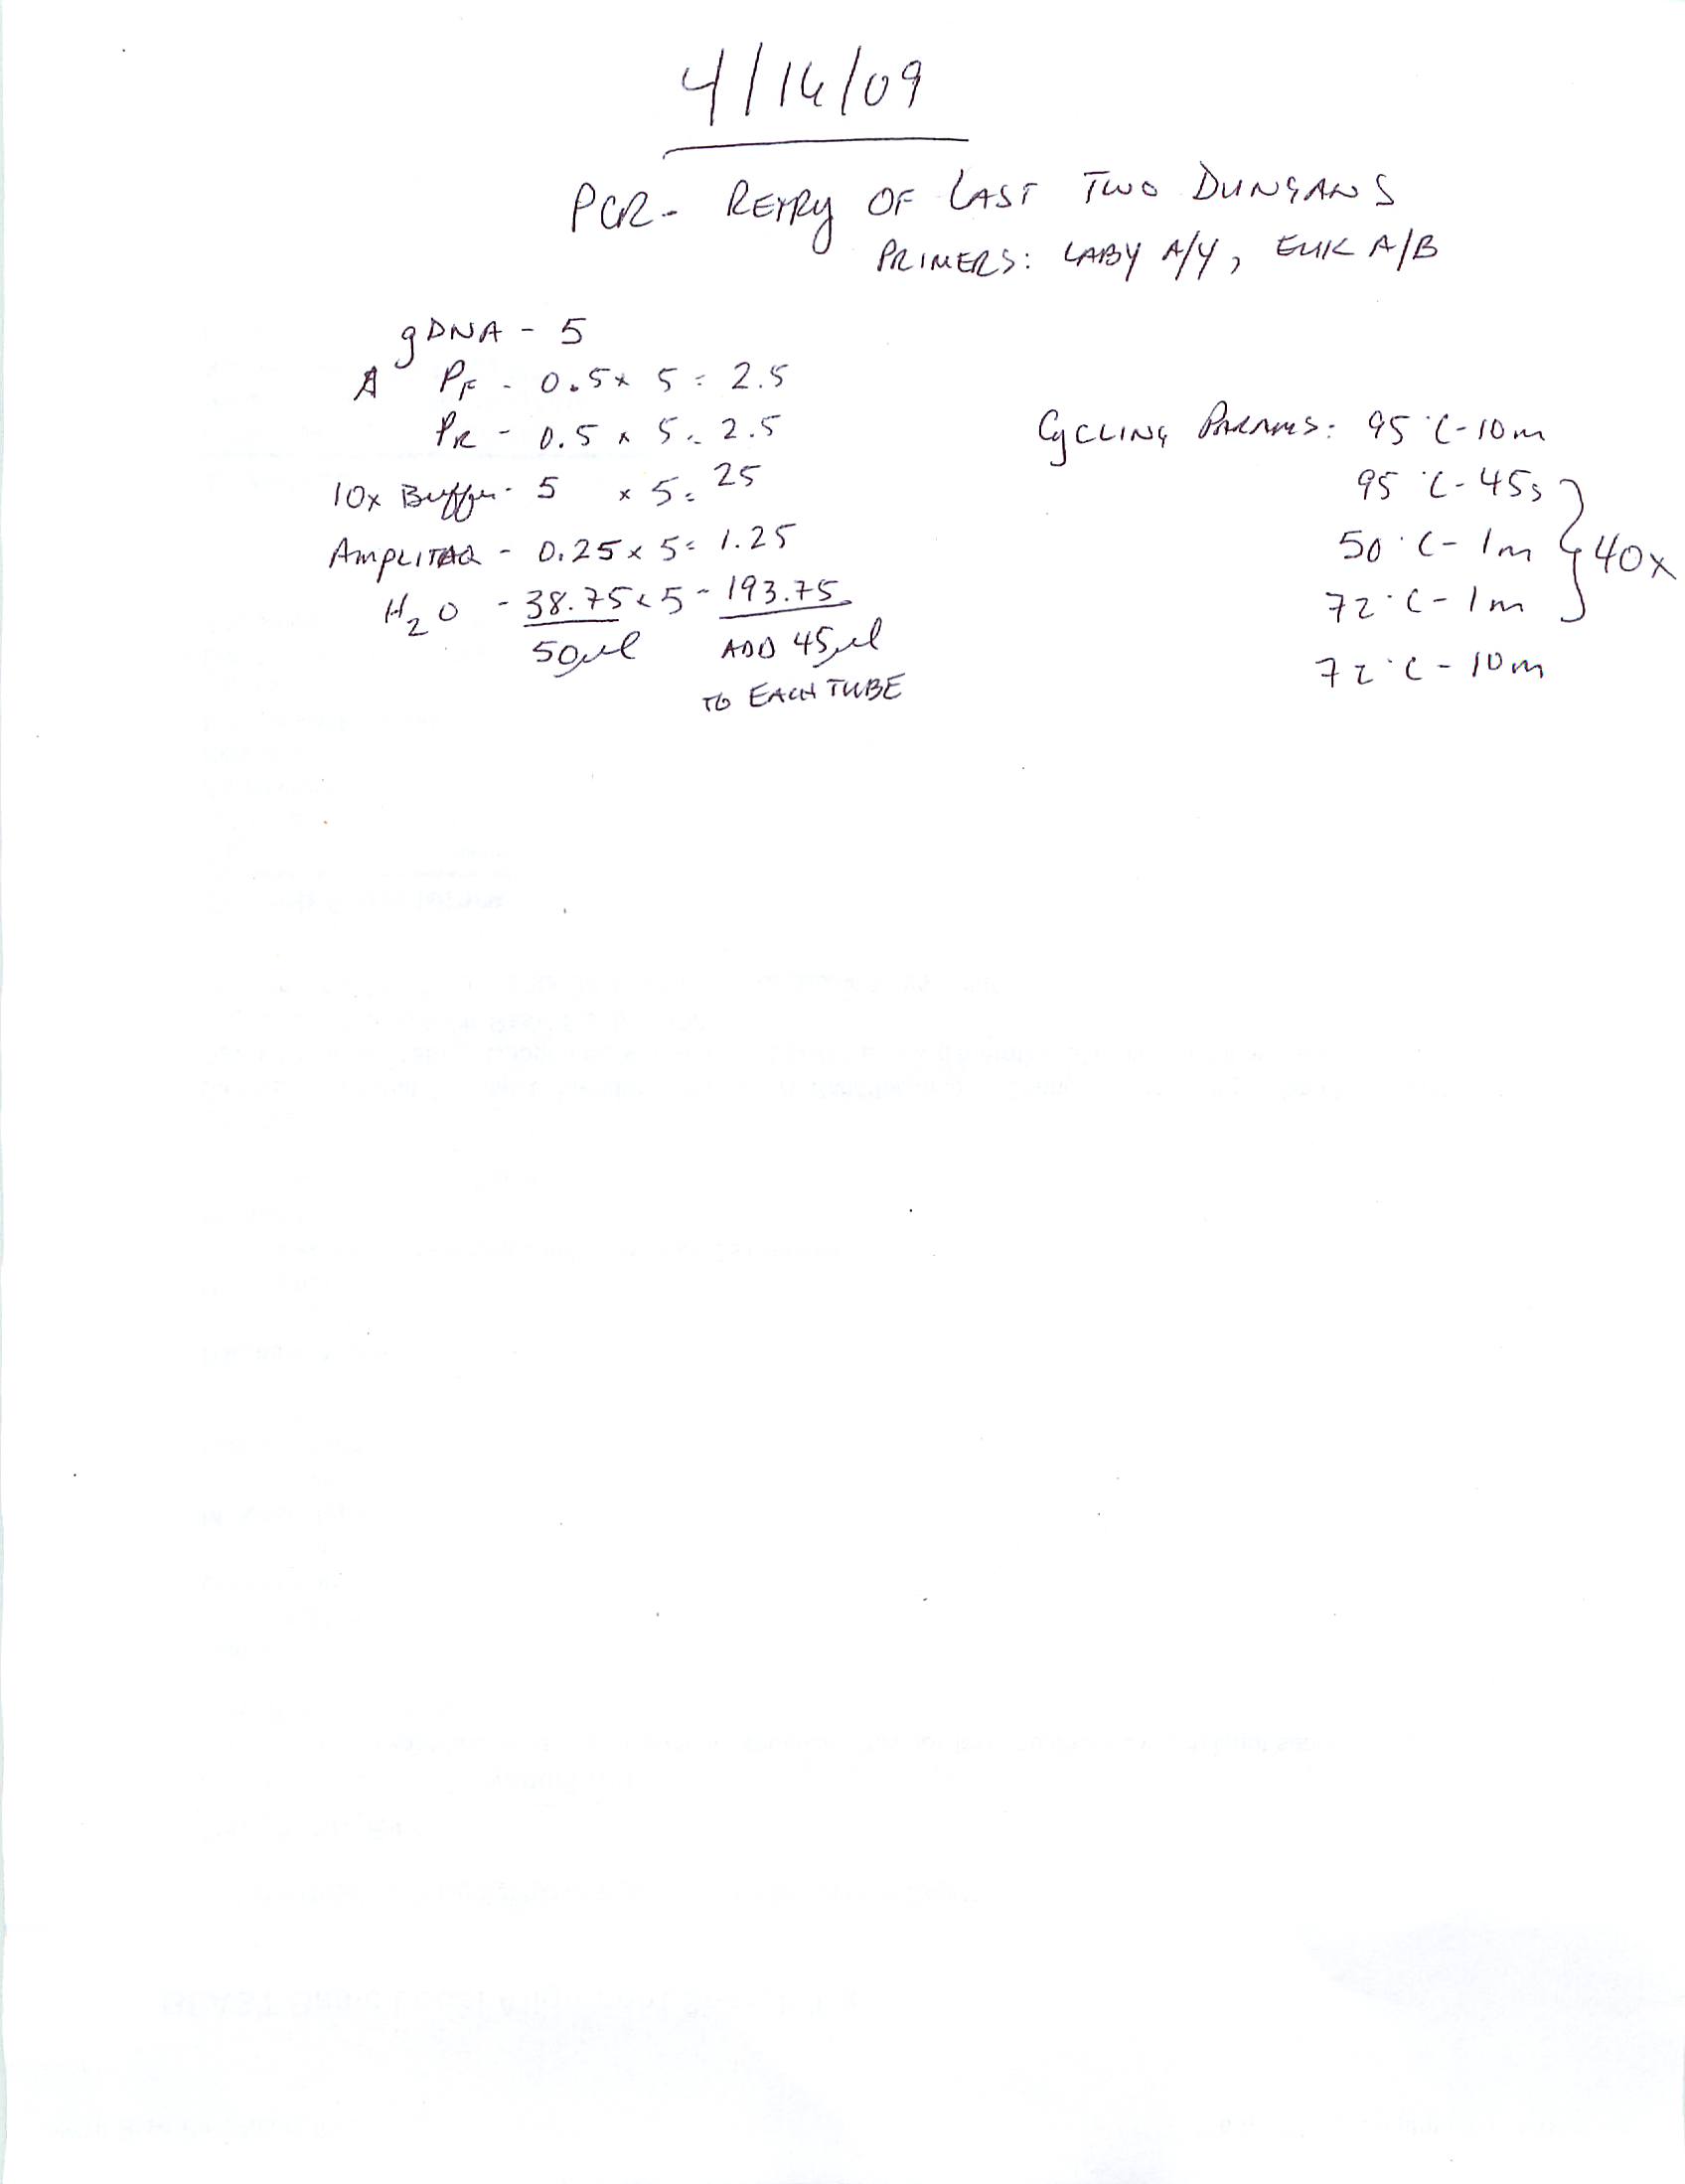 4/16/09
PCR - RETRY OF LAST TWO DUNGANS
PRIMERS: LABY A/Y, EUK A/B
gDNA - 5
A PF - 0.5 x 5 = 2.5
PR - 0.5 x 5 = 2.5
10x Buffer - 5 x 5 = 25
AMPLITAQ - 0.25 x 5 = 1.25
H2O - 38.75 x 5 - 193.75
50µl ADD 45µl
TO EACH TUBE
CYCLING PARAMS: 95°C - 10m
95°C - 45s
50°C - 1m } 40x
72°C - 1m
72°C - 10m